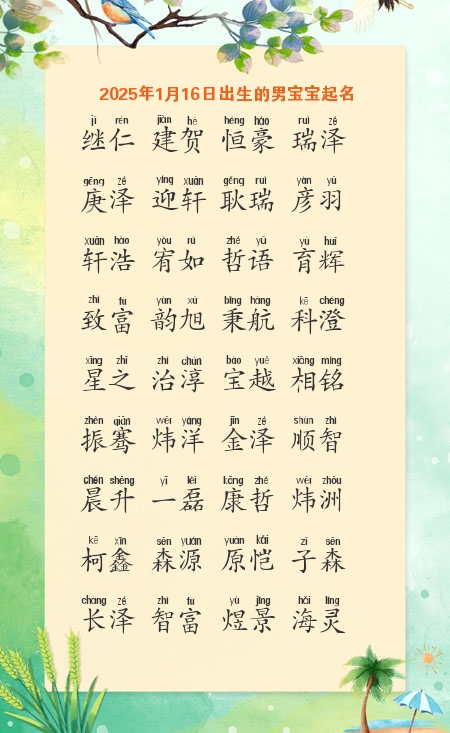 2025年1月16日出生的男宝宝起名
jì rén jiàn hè héng háo ruì zé
继仁 建贺 恒豪 瑞泽
gēng zé yíng xuān gěng ruì yàn yǔ
庚泽 迎轩 耿瑞 彦羽
xuān hào yòu rú zhé yǔ yù huī
轩浩 宥如 哲语 育辉
zhì fù yùn xù bǐng háng kē chéng
致富 韵旭 秉航 科澄
xīng zhī zhì chún bǎo yuè xiāng míng
星之 治淳 宝越 相铭
zhèn qiān wěi yáng jīn zé shùn zhì
振骞 炜洋 金泽 顺智
chén shēng yī lěi kāng zhé wěi zhōu
晨升 一磊 康哲 炜洲
kē xīn sēn yuán yuán kǎi zǐ sēn
柯鑫 森源 原恺 子森
cháng zé zhì fù yù jǐng hǎi líng
长泽 智富 煜景 海灵